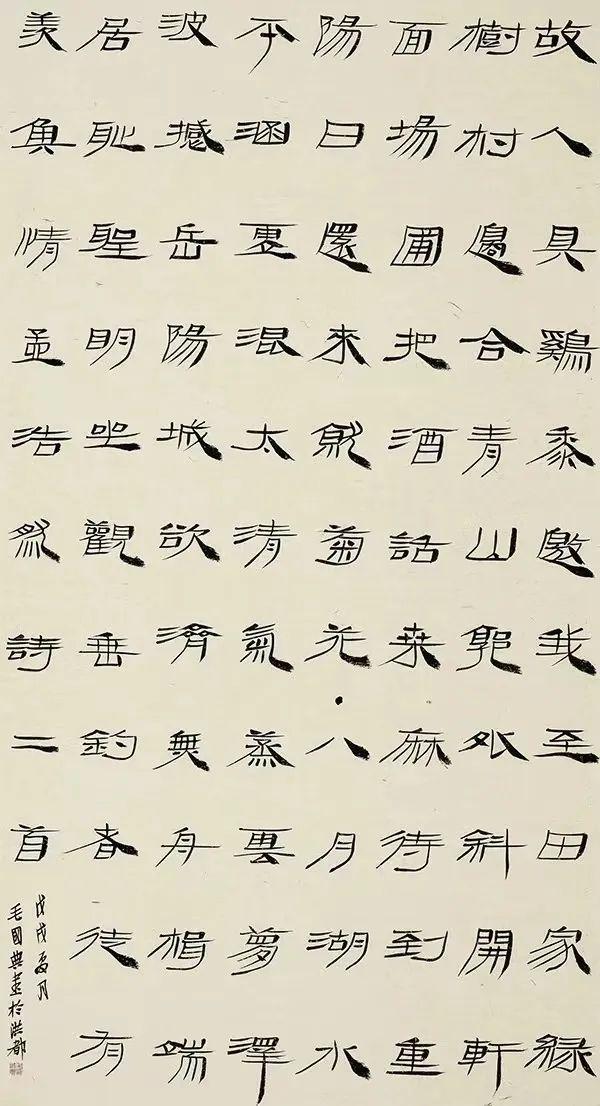 故人具鷄黍邀我至田家緑
樹村邊合青山郭外斜開軒
面場圃把酒話桒麻待到重
陽日還來就菊花·八月湖水
平涵更混太清氣蒸雲夢澤
波撼岳陽城欲濟無舟楫端
居恥聖明坐觀垂釣者徒有
羨魚情孟浩然詩二首
戊戌夏月
毛國典書於洪都